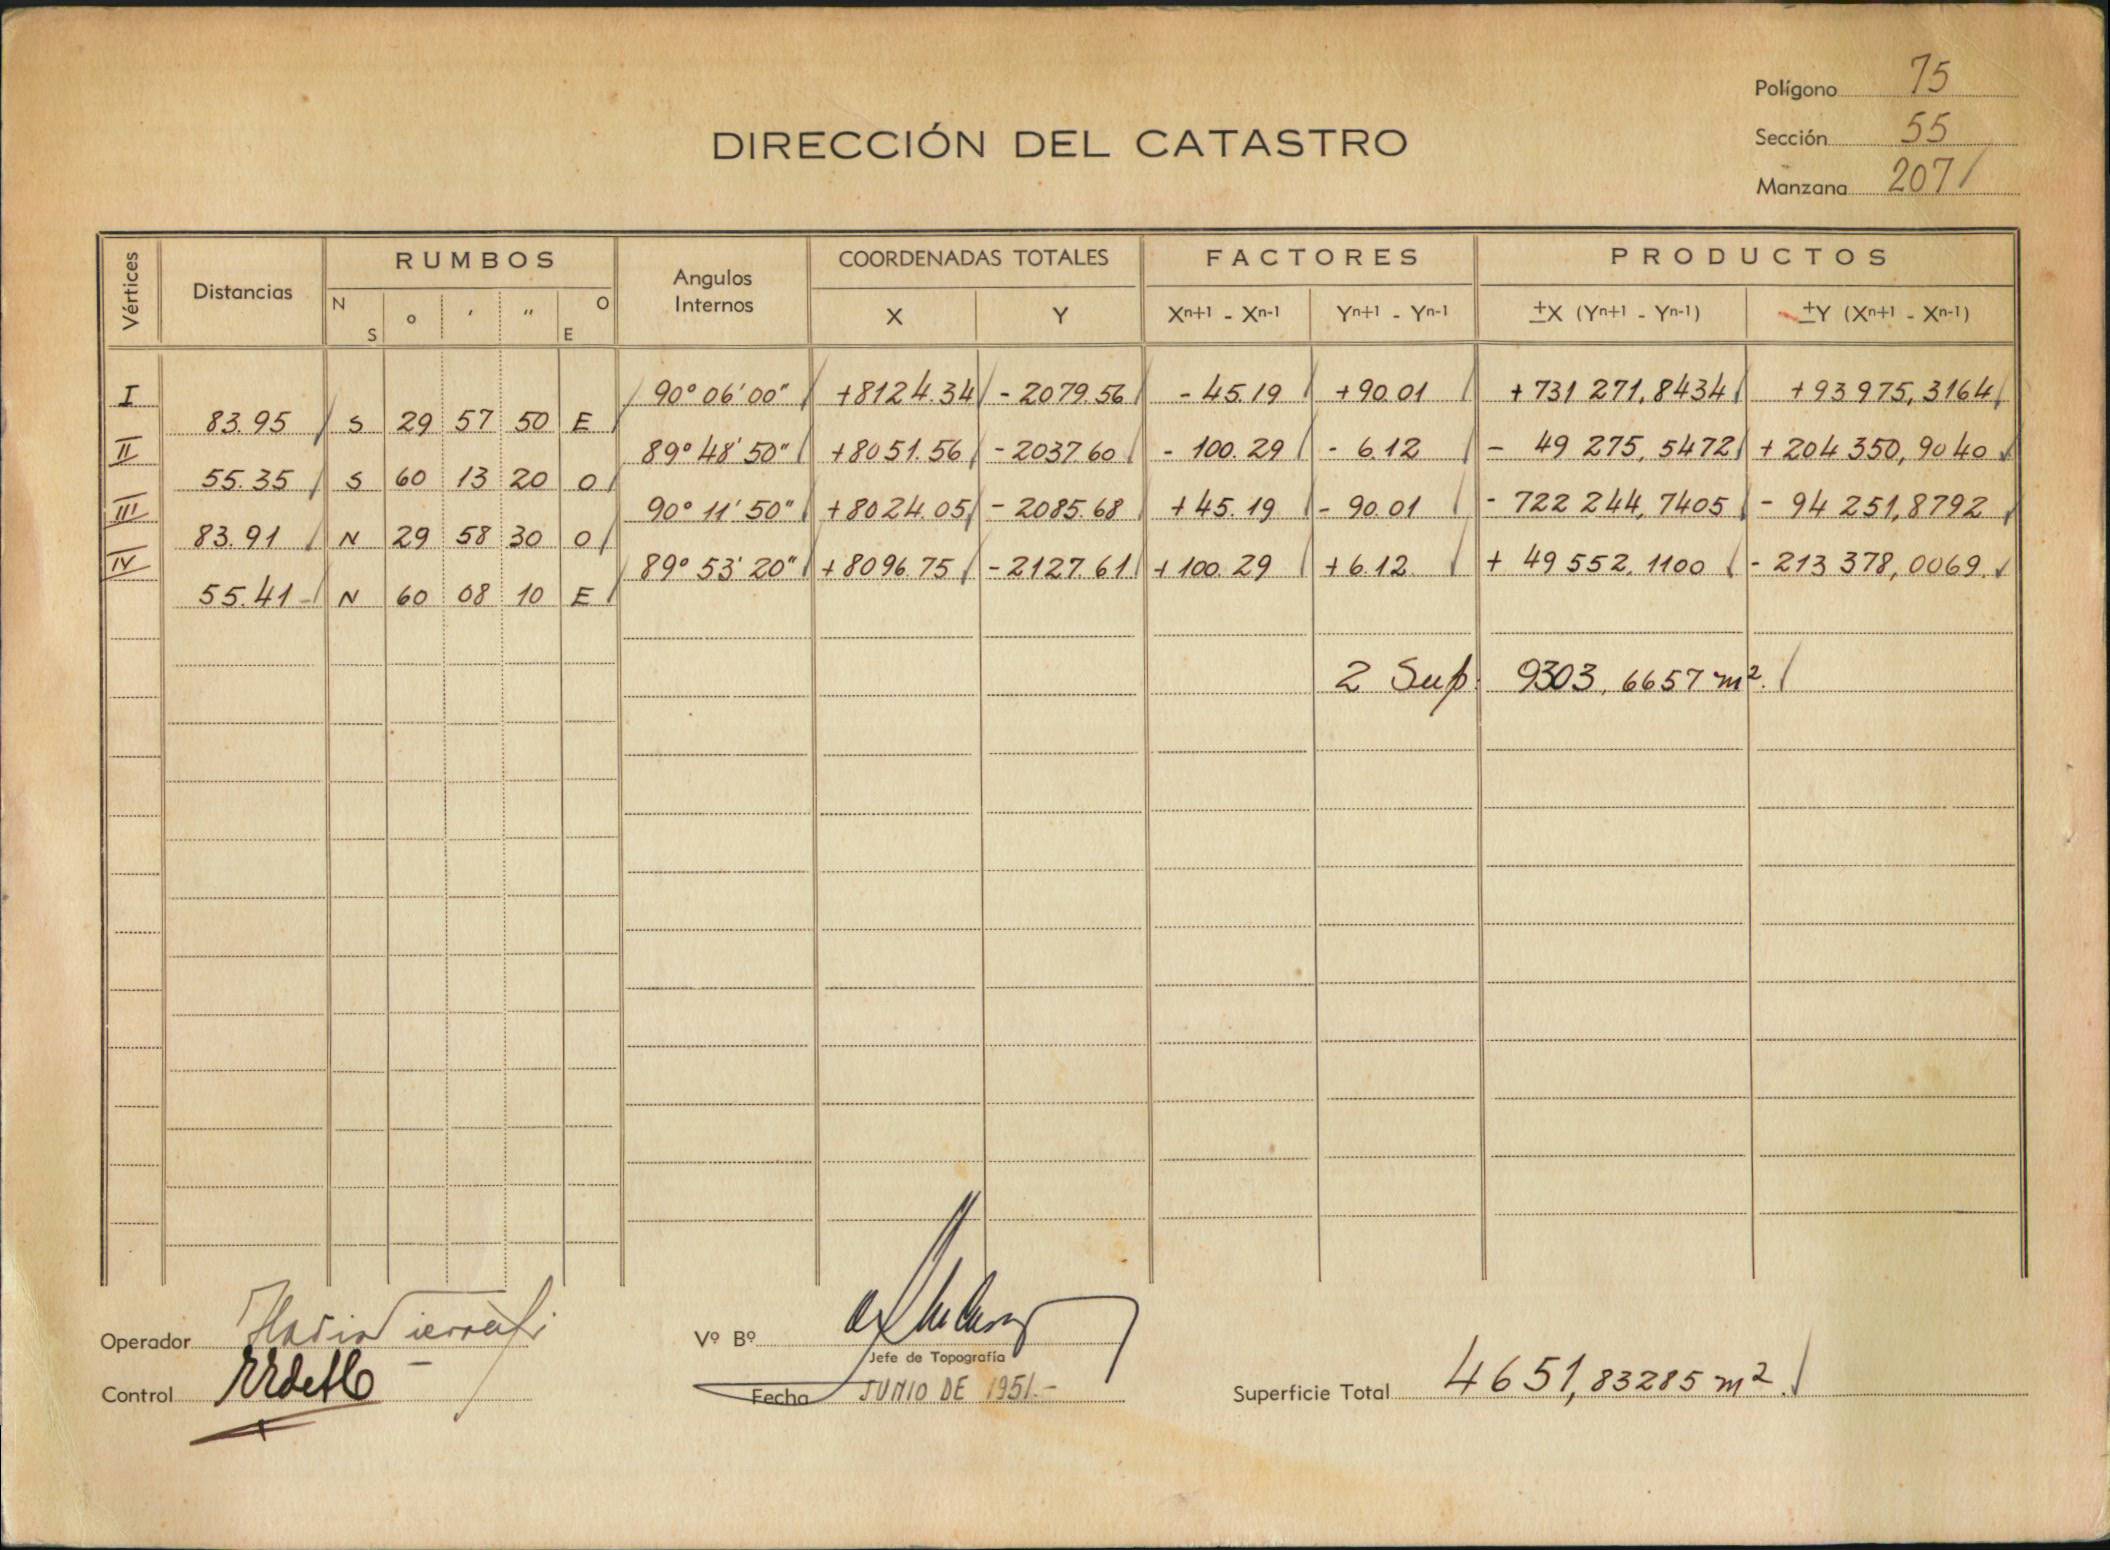 Polígono 75
DIRECCIÓN DEL CATASTRO
Sección 55
Manzana 207
Vértices Distancias RUMBOS Angulos Internos COORDENADAS TOTALES FACTORES PRODUCTOS
N S o ' " O E X Y Xn+1 - Xn-1 Yn+1 - Yn-1 ±X (Yn+1 - Yn-1) ±Y (Xn+1 - Xn-1)
I 90° 06' 00" +8124.34 - 2079.56 - 45.19 + 90.01 + 731 271,8434 + 93 975,3164
83.95 S 29 57 50 E
II 89° 48' 50" +8051.56 - 2037.60 - 100.29 - 6.12 - 49 275,5472 + 204 350,9040
55.35 S 60 13 20 O
III 90° 11' 50" +8024.05 - 2085.68 + 45.19 - 90.01 - 722 244,7405 - 94 251,8792
83.91 N 29 58 30 O
IV 89° 53' 20" +8096.75 - 2127.61 + 100.29 + 6.12 + 49 552.1100 - 213 378,0069
55.41 N 60 08 10 E
2 Sup. 9303,6657 m².
Operador
Vº Bº
Jefe de Topografía
Control
Fecha JUNIO DE 1951.-
Superficie Total 4651,83285 m².